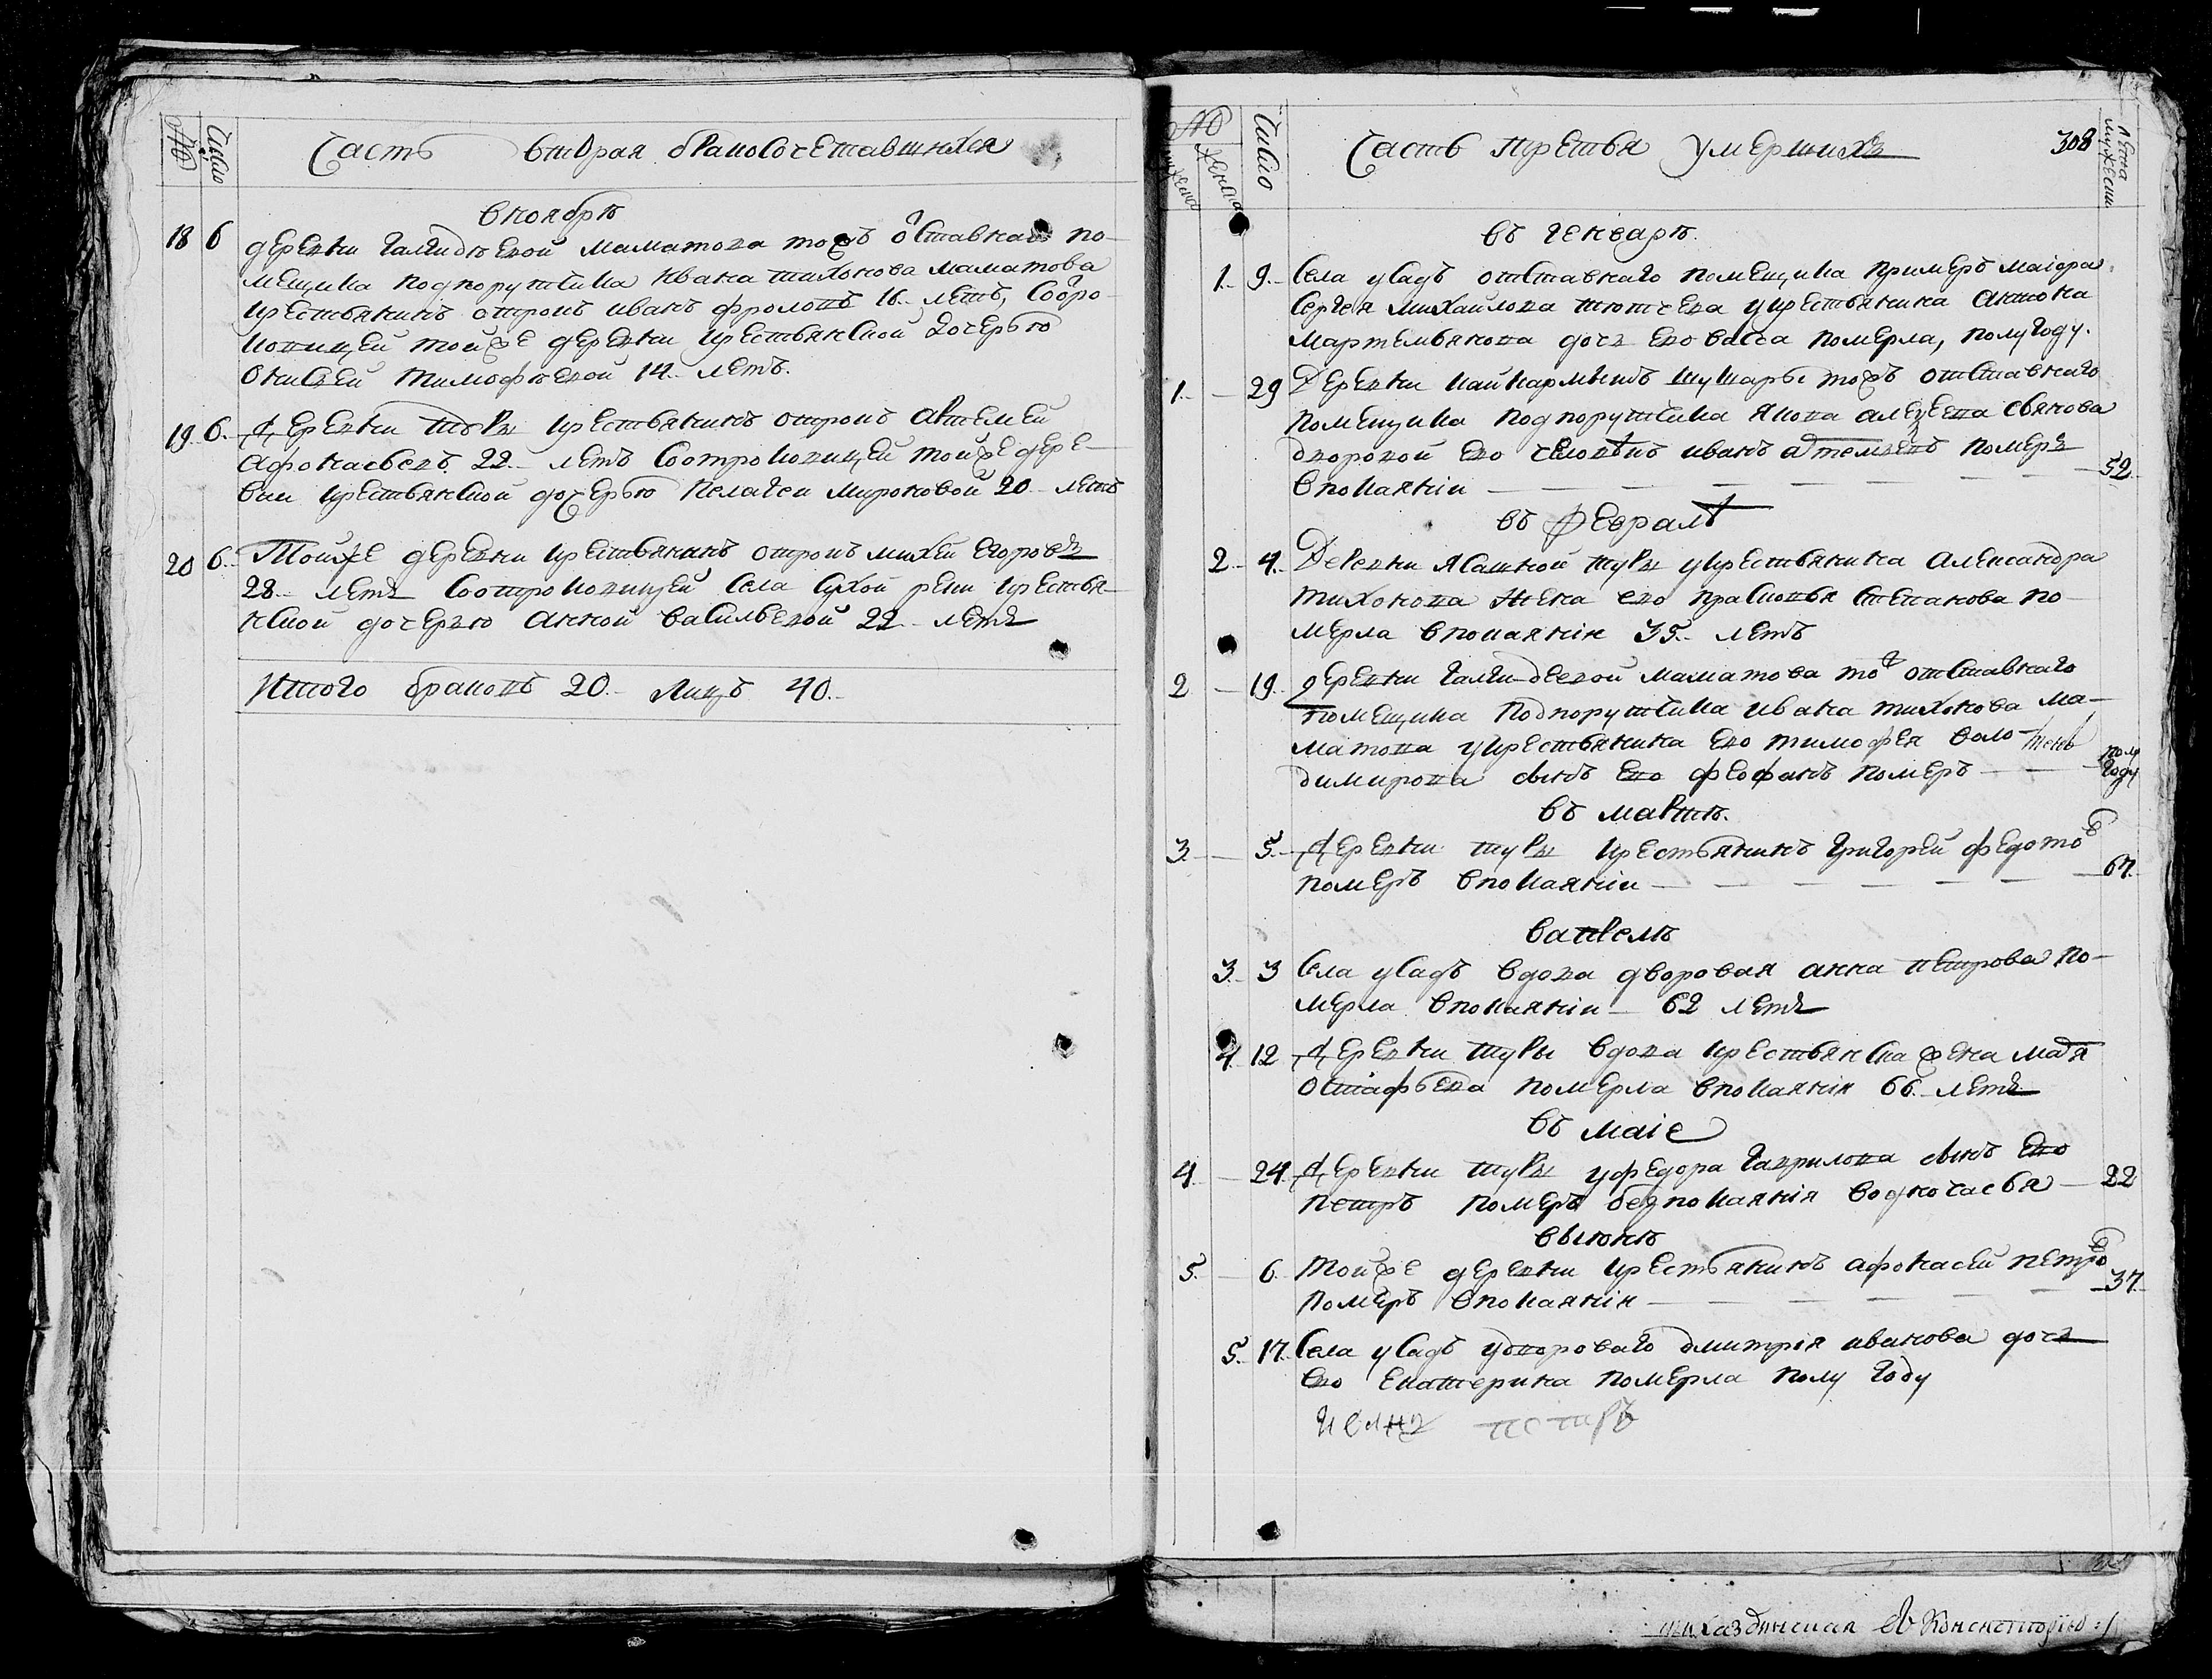 №
Число
Часть вторая бракосочетавшихся
вноябрѣ
18 6 деревни Галгидѣевой Маматова тожъ отставнаго по-
мещика подпорутчика Ивана Тихонова Маматова
крестьянинъ отрокъ иванъ фроловъ 16 летъ, Соотро-
ковицей тойже деревни крестьянской дочерью
Тимофѣевой 14 летъ.
19 6 Деревни Туры крестьянинъ отрокъ Артемей
Афонасьевъ 22 летъ Соотроковицей тойже дере-
вни крестьянской дочерью Пелагеи Мироновой 20 летъ
20 6 Тойже деревни крестьянинъ отрокъ михей Егоровъ
28 летъ Соотроковицей Села Сухой реки крестья-
нской дочерью Анной васильевой 22 летъ
Итого браковъ 20. Лицъ 40.
№
мужеска
женска
Число
Часть третья умершихъ
308
Лета мужеска
въ Генварѣ.
1. 9. Села усадъ отставнаго помещика примеръ маiора
Сергея Михайлова тютчева укрестьянина Антона
Мартемьянова дочь ево васса померла, полугоду.
1. 29 Деревни тожъ отставнаго
помещика подпорутчика Якова
дворовой ево человѣкъ иванъ померъ
впокаянiи 52
въ Февралѣ
2. 4. Деревни Ясашной Туры укрестьянина Александра
тихонова жена ево прасковья Степанова по-
мерла впокаянiи 35 летъ
2 19. деревни Галгидѣевой Маматова тож отставнаго
помещика Подпорутчика ивана тихонова Ма-
матова укрестьянина ево тимофея воло-
димирова сынъ ево феофанъ померъ полу году
въ мартѣ.
3 5. Деревни туры крестьянинъ Григорей федотовъ
померъ впокаянiи 67.
вапрелѣ
3. 3 Села усадъ вдова дворовая анна петрова по-
мерла впокаянiи 62 летъ
4 12 Деревни туры вдова крестьянска жена
Остафьева померла впокаянiи 66 летъ
въ маiе
4 24. Деревни туры уфедора Гаврилова сынъ ево
петръ померъ безпокаянiя водночасья 22
виюнѣ
5. 6. Тойже деревни крестьянинъ афонасей петровъ
померъ впокаянiи 37.
5. 17. Села усадъ удвороваго дмитрiя иванова дочь
ево Екатерина померла полу году
петръ
Консисторiю